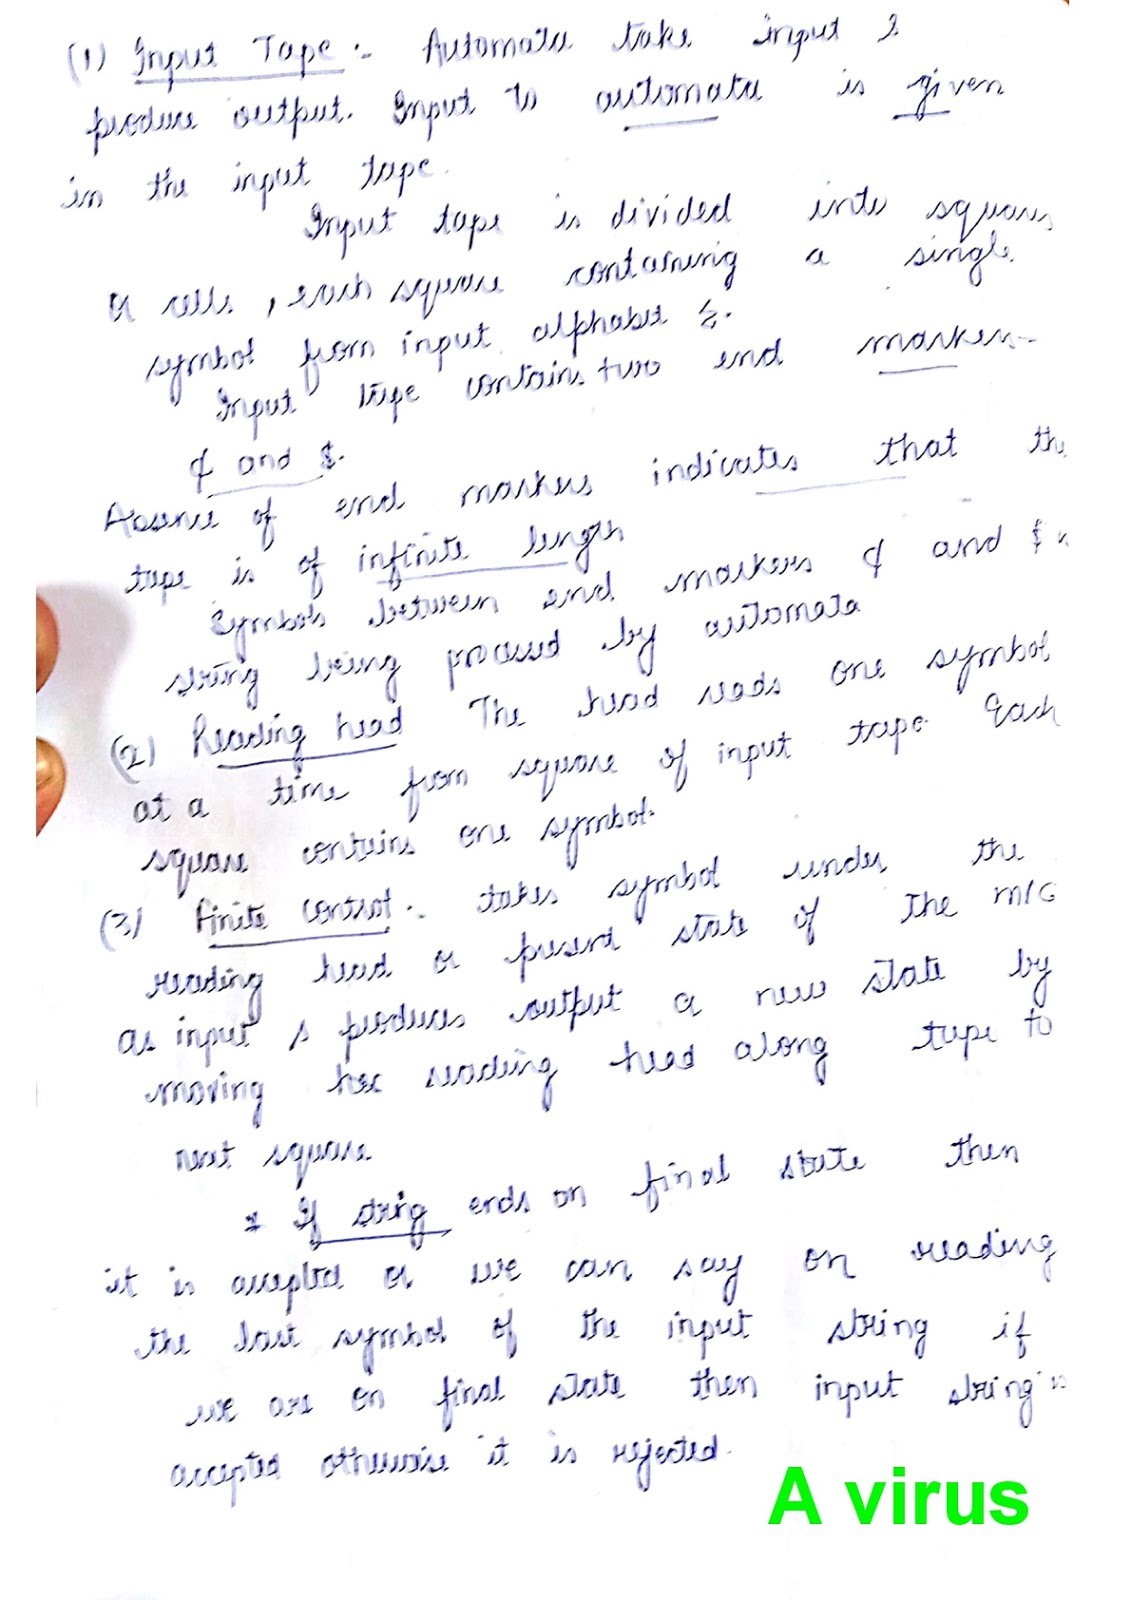 (1) Input Tape :- Automata take input &
produce output. Input to automata is given
in the input tape.
Input tape is divided into squares
or cells, each square containing a single
symbol from input alphabet Σ.
Input tape contains two end markers
¢ and $.
Absence of end markers indicates that the
tape is of infinite length
Symbols between end markers ¢ and $ is
string being processed by automata
(2) Reading head The head reads one symbol
at a time from square of input tape Each
square contains one symbol.
(3) Finite control :- takes symbol under the
reading head or present state of the m/c
as input & produces output a new state by
moving reading head along tape to
next square
* If string ends on final state then
it is accepted or we can say on reading
the last symbol of the input string if
we are on final state then input string is
accepted otherwise it is rejected.
A virus